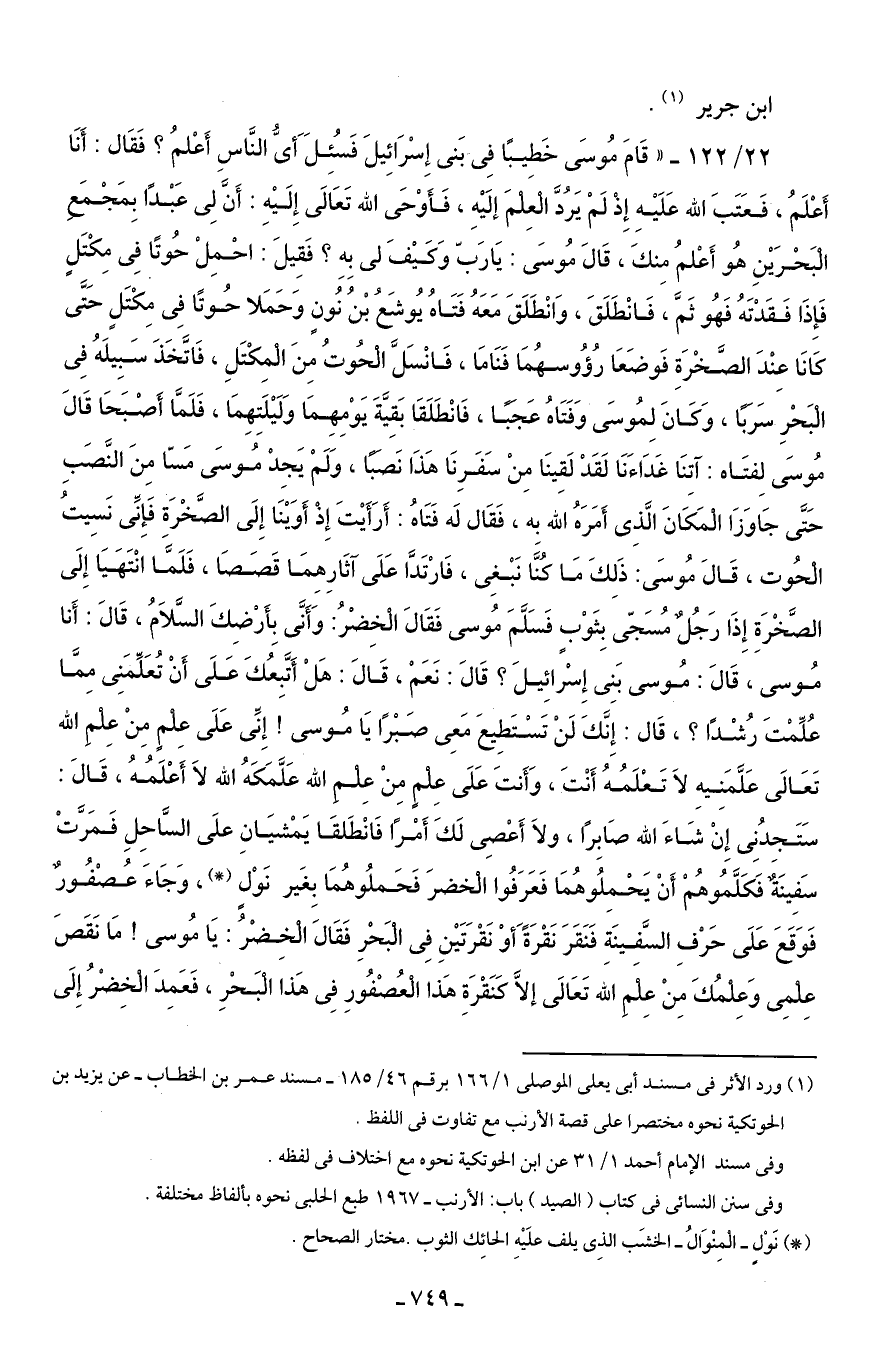 ابن جرير (١) .
٢٢/ ١٢٢ ـ « قَامَ مُوسَى خَطِيبًا فِى بَنِى إِسْرَائِيلَ فَسُئِلَ أَىُّ النَّاسِ أَعْلَمُ ؟ فَقَال : أَنَا
أَعْلَمُ ، فَعَتَبَ الله عَلَيْهِ إِذْ لَمْ يَرُدَّ الْعِلْمَ إِلَيْهِ ، فَأَوْحَى الله تَعَالَى إِلَيْهِ : أَنَّ لِى عَبْدًا بِمَجْمَعِ
الْبَحْرَيْنِ هُو أَعْلَمُ مِنكَ ، قَالَ مُوسَى : يَارَبِّ وَكَيْفَ لِى بِهِ ؟ فَقِيلَ : احْمِلْ حُوتًا فِى مِكْتَلٍ
فَإِذَا فَقَدْتَهُ فَهُو ثَمَّ ، فَانْطَلَقَ ، وَانْطَلَقَ مَعَهُ فَتَاهُ يُوشَعُ بْنُ نُونٍ وَحَمَلا حُوتًا فِى مِكْتَلٍ حَتَّى
كَانَا عِنْدَ الصَّخْرَةِ فَوضَعَا رُؤُوسهُمَا فَنَامَا ، فَانْسَلَّ الْحُوتُ مِنَ الْمِكْتَلِ ، فَاتَّخَذَ سَبِيلَهُ فِى
الْبَحْرِ سَرَبًا ، وَكَانَ لِمُوسَى وَفَتَاهُ عَجَبًا ، فَانْطَلَقَا بَقِيَّةَ يَوْمِهِمَا وَلَيْلَتِهِمَا ، فَلَمَّا أَصْبَحَا قَالَ
مُوسَى لِفتَاه : آتِنَا غَدَاءَنَا لَقَدْ لَقِينَا مِنْ سَفَرِنَا هَذَا نَصَبًا ، ولَمْ يَجِدْ مُوسَى مَسّا مِنَ النَّصَبِ
حَتَّى جَاوَزَا الْمَكَانَ الَّذِى أَمَرَهُ الله بِهِ ، فَقَال لَه فَتَاهُ : أَرَأَيْتَ إِذْ أَوَيْنَا إِلَى الصَّخْرَةِ فَإِنِّى نَسِيتُ
الْحُوت ، قَالَ مُوسَى: ذَلِكَ مَا كُنَّا نَبْغِى ، فَارْتَدَّا عَلَى آثَارِهِمَا قَصَصَا ، فَلَمَّا انْتَهَيَا إِلَى
الصَّخْرَةِ إِذَا رَجُلٌ مُسَجّى بِثَوْبٍ فَسَلَّمَ مُوسى فَقَالَ الْخَضِرُ: وَأَنَّى بِأَرْضِكَ السَّلاَمُ ، قَالَ : أَنا
مُوسى ، قَالَ : مُوسى بَنِى إِسْرائِيلَ ؟ قَالَ : نَعَمْ ، قَالَ : هَلْ أَتَّبِعُكَ عَلَى أَنْ تُعَلِّمَنِى مِمَّا
عُلِّمْتَ رُشْدًا ؟ ، قَال : إِنَّكَ لَنْ تَسْتَطِيعَ مَعِى صَبْرًا يَا مُوسى ! إِنِّى عَلَى عِلْمٍ مِنْ عِلْمِ الله
تَعَالَى عَلَّمَنِيهِ لاَ تَعْلَمُهُ أَنْتَ ، وَأَنتَ عَلَى عِلْمٍ مِنْ عِلْمِ الله عَلَّمَكَهُ الله لاَ أَعْلَمُهُ ، قَالَ :
سَتَجِدُنِى إِنْ شَاءَ الله صَابِرًا ، وَلاَ أَعْصِى لَكَ أَمْرًا فَانْطَلَقَا يَمْشِيَانِ عَلى السَّاحِلِ فَمَرَّتْ
سَفِينَةٌ فَكَلَّمُوهُمْ أَنْ يَحْمِلُوهُمَا فَعَرَفُوا الْخضِرَ فَحَمِلُوهُمَا بِغَيرِ نَوْلٍ (*) ، وَجَاءَ عُصْفُورٌ
فَوَقَعَ عَلَى حَرْفِ السَّفِينَةِ فَنَقَرَ نَقْرَةً أَوْ نَقْرَتَيْنِ فِى الْبَحْرِ فَقَالَ الْخضِرُ : يَا مُوسى ! مَا نَقَصَ
عِلْمِى وَعِلْمُكَ مِنْ عِلْمِ الله تَعَالَى إِلاَّ كَنَقْرَةِ هَذَا الْعُصْفُورِ فِى هَذا الْبَحْرِ ، فَعَمِدَ الْخضِرُ إِلَى
(١) ورد الأثر فى مسند أبى يعلى الموصلى ١/ ١٦٦ برقم ٤٦/ ١٨٥ ـ مسند عمر بن الخطاب ـ عن يزيد بن
الحوتكية نحوه مختصرا على قصة الأرنب مع تفاوت فى اللفظ .
وفى مسند الإمام أحمد ١/ ٣١ عن ابن الحوتكية نحوه مع اختلاف فى لفظه .
وفى سنن النسائى فى كتاب ( الصيد ) باب: الأرنب ـ ١٩٦٧ طبع الحلبى نحوه بألفاظ مختلفة .
(*) نَوْلٍ ـ الْمِنْوَالُ ـ الخشب الذى يلف عليْهِ الحائك الثوب .مختار الصحاح .
ـ ٧٤٩ ـ